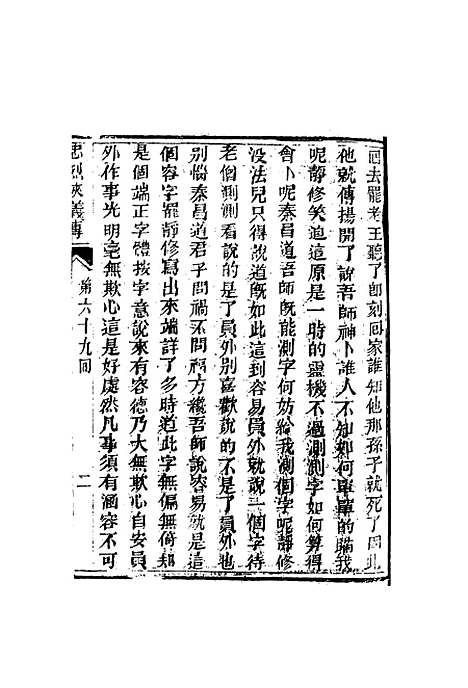 回去罷老王聽了卽刻回家誰知他那孫子就死了因此
他就傳揚開了說吾師神卜誰人不知如何單單的瞞我
呢靜修笑道這原是一時的靈機不過測測字如何算得
會卜呢秦昌道吾師旣能測字何妨給我測個字呢靜修
沒法兒只得說道旣如此這到容易員外就說一個字待
老僧測測看說的是了員外別喜歡說的不是了員外也
別惱秦昌道君子問禍不問福方纔吾師說容易就是這
個容字罷靜修寫出來端詳了多時道此字無偏無倚却
是個端正字體按字意說來有容德乃大無欺心自安員
外作事光明毫無欺心這是好處然凡事須有涵容不可
忠烈俠義傳
第六十九回
二